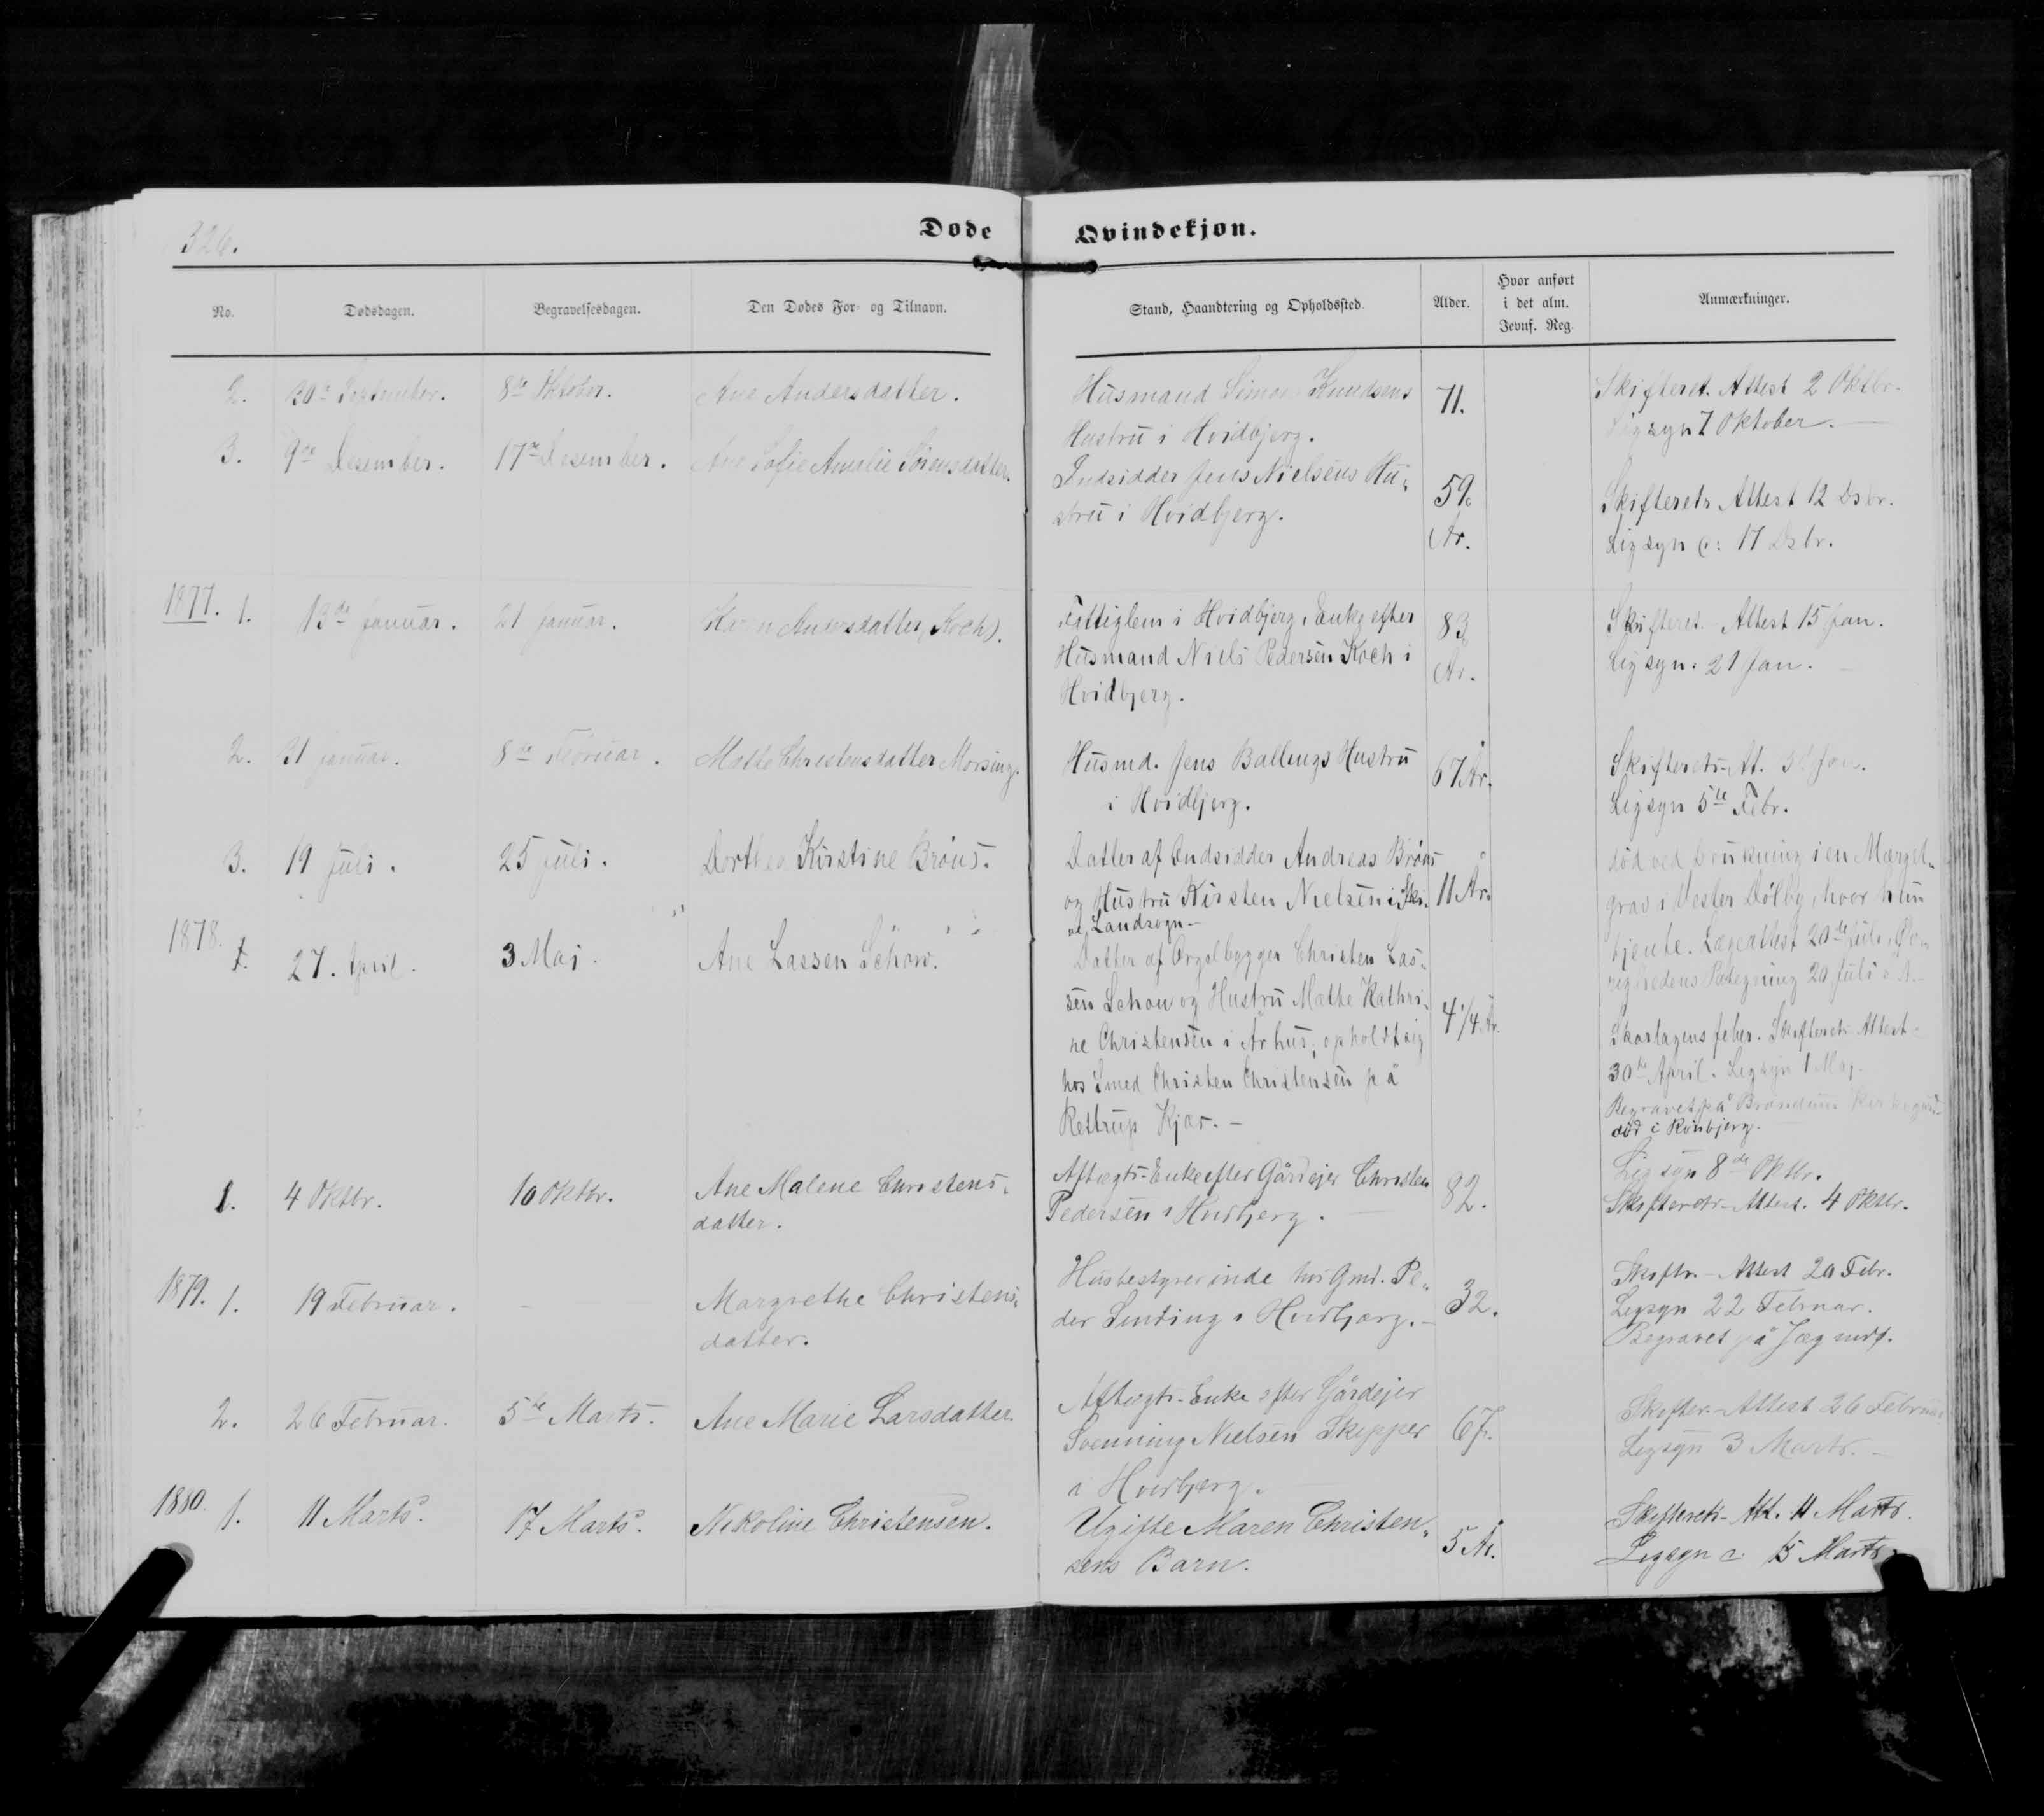 326.
Døde Qvindekjøn.
No. Dødsdagen. Begravelsesdagen. Den Dødes For- og Tilnavn. Stand, Haandtering og Opholdssted. Alder. Hvor anført i det alm. Jevnf. Reg. Anmærkninger.
2. 30te September. 8de Oktober. Ane Andersdatter. Husmand Simon Knudsens 71. Skifteret. Attest 2 Oktbr.
Hustru i Hvidbjerg. Ligsyn 7 Oktober.
3. 9de Desember. 17de Desember. Ane Sofie Amalie Sørensdatter. Indsidder Jens Nielsens Hu-
stru i Hvidbjerg. 59 Ar. Skifterets Attest 12 Dsbr.
Ligsyn c: 17 Dsbr.
1877. 1. 13de Januar. 21 Januar. Karen Andersdatter (Koch). Fattiglem i Hvidbjerg, Enke efter 83 Skifteret-Attest 15 Jan.
Husmand Niels Pedersen Koch i Ar. Ligsyn. 21 Jan.
Hvidbjerg.
2. 31 januar. 8de Februar. Mette Christensdatter Morsing. Husmd. Jens Ballings Hustru 67 År. Skifterets-At. Jan.
i Hvidbjerg. Ligsyn 5te Febr.
3. 19 Juli. 25 Juli. Dorthea Kirstine Brøns. Datter af Indsidder Andreas Brøns 11 År. død ved Drukning i en Mærgel-
og Hustru Kirsten Nielsen i Ski- grav i Vester Dølby, hvor hun
ve Landsogn- tjente. Lægeattest 20de Juli, Øv-
righedens Paategning 20 Juli
1878. 1. 27. April. 3 Maj. Ane Lassen Schow. Datter af Orgelbygger Christen Las-
sen Schou og Hustru Mette Kathri- 4 1/4 Ar.
ne Christensen i Århus, opholdt sig Skarlagensfeber. Skifterets Attest
hos Smed Christen Christensen på 30te April. Ligsyn 1 Maj.
Rettrup Kjær.- Begravet på Brøndum Kirkegård
død i Rønbjerg.
1. 4 Oktbr. 10 Oktbr. Ane Malene Christens- Aftægts-Enke efter Gårdejer Christen 82. Ligsyn 8de Oktbr.
datter. Pedersen i Hvidbjerg. Skifterets-Attest. 4 Oktbr.
1879. 1. 19 Februar. Margrethe Christens- Husbestyrerinde hos Gmd. Pe- 32. Skiftr.-Attest 20 Febr.
datter. der i Hvidbjerg.- Ligsyn 22 Februar.
Begravet på
2. 26 Februar. 5te Marts. Ane Marie Larsdatter. Aftægts-Enke efter Gårdejer 67. Skifter-Attest 26 Februar
Svenning Nielsen Skipper Ligsyn 3 Marts.-
i Hvidbjerg.
1880. 1. 11 Marts. 17 Marts. Nikoline Christensen. Ugifte Maren Christen- 5 År. Skifterets-Att. 11 Marts.
sens Barn. Ligsyn c. 15 Marts.